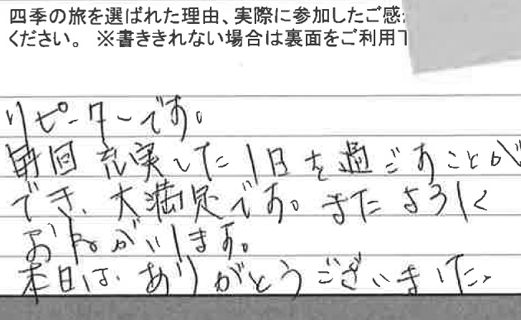 四季の旅を選ばれた理由、実際に参加したご感
ください。 ※書ききれない場合は裏面をご利用下
リピーターです。
毎回 充実した1日を過ごすことが
でき、大満足です。またよろしく
おねがいします。
本日は、ありがとうございました。